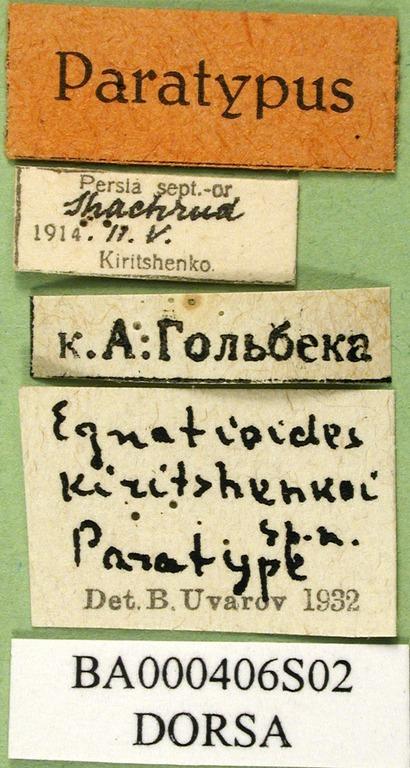 Paratypus
Persia sept.-or
Shachrud
1914. 11. V.
Kiritshenko.
к. А. Гольбека
Egnatioides
kiritshenkoi
sp. n.
Paratype
Det. B. Uvarov 1932
BA000406S02
DORSA